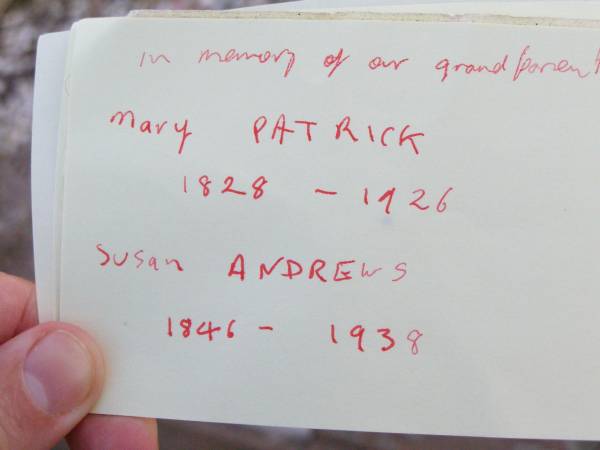 in memory of our grandparent
Mary PATRICK
1828 - 1926
Susan ANDREWS
1846 - 1938